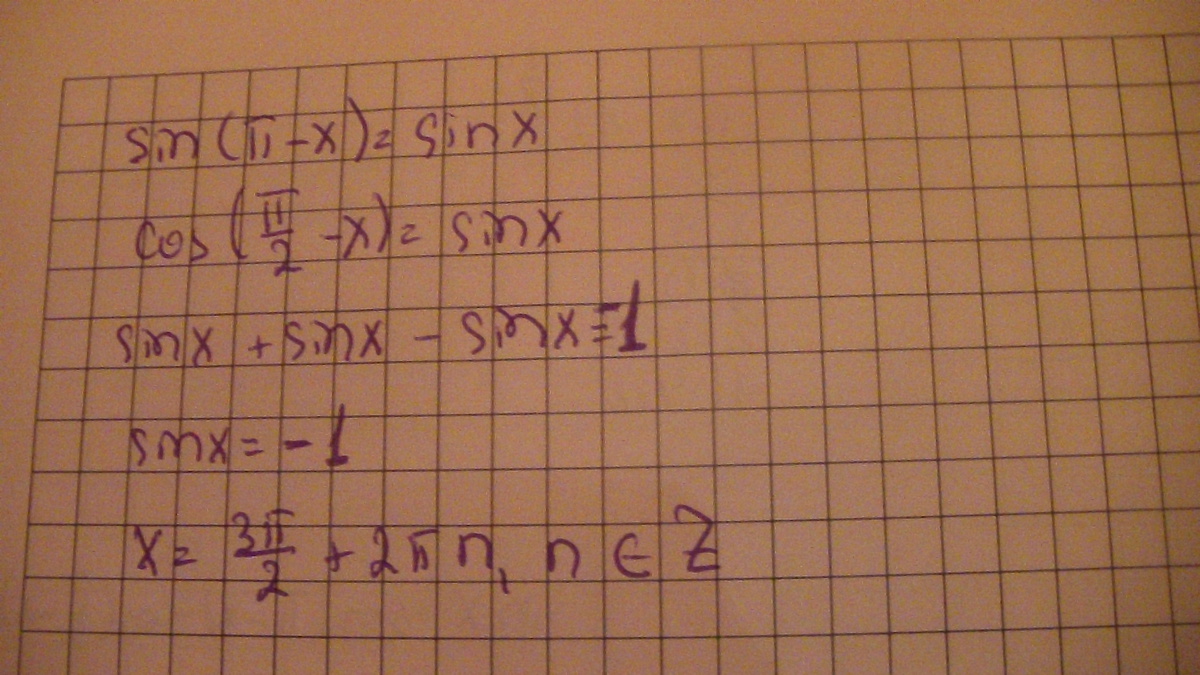 sin(π-x)= sinx
cos(π/2 -x)= sinx
sinx + sinx - sinx=-1
sinx= -1
x= 3π/2 + 2πn, n ∈ Z